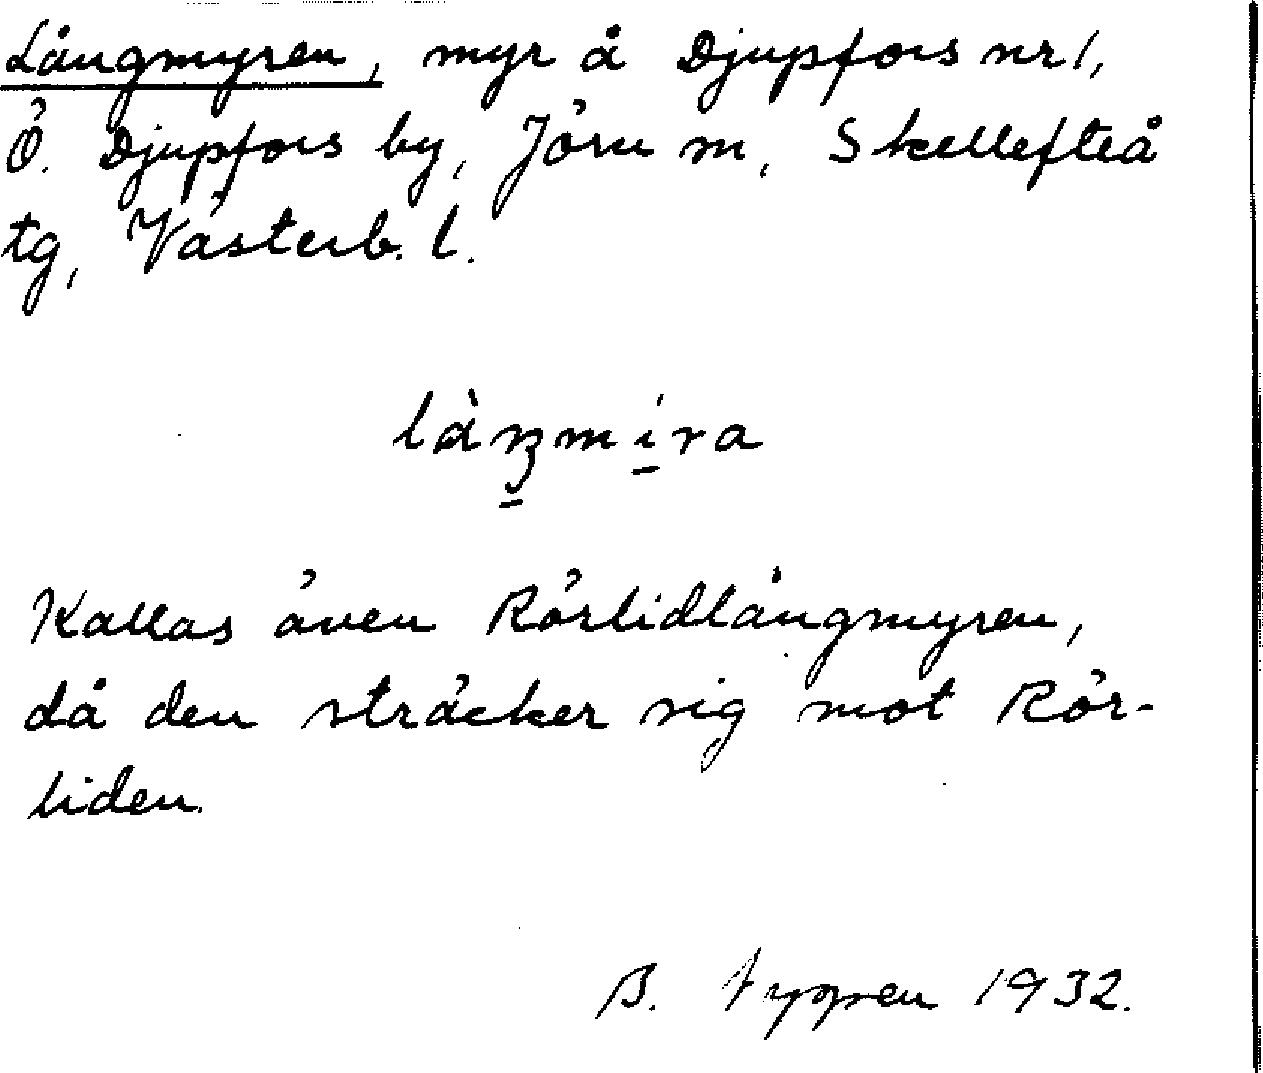 Långmyren, myr å Djupfors nr 1,
Ö. Djupfors by, Jörn m, Skellefteå
tg, Västerb. l.
làŋmíra
Kallas även Rörlidlångmyren,
då den sträcker sig mot Rör-
liden.
B. 1932.